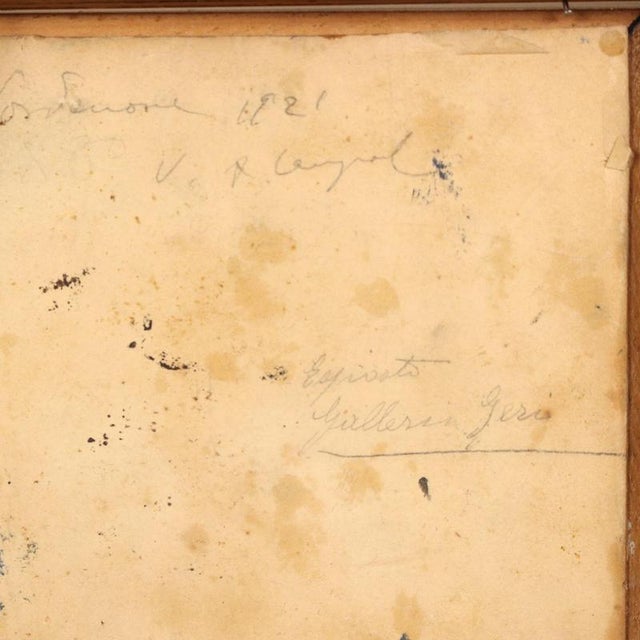 Pordenone 1921
V. A Cargnel
Esposto
Galleria Geri